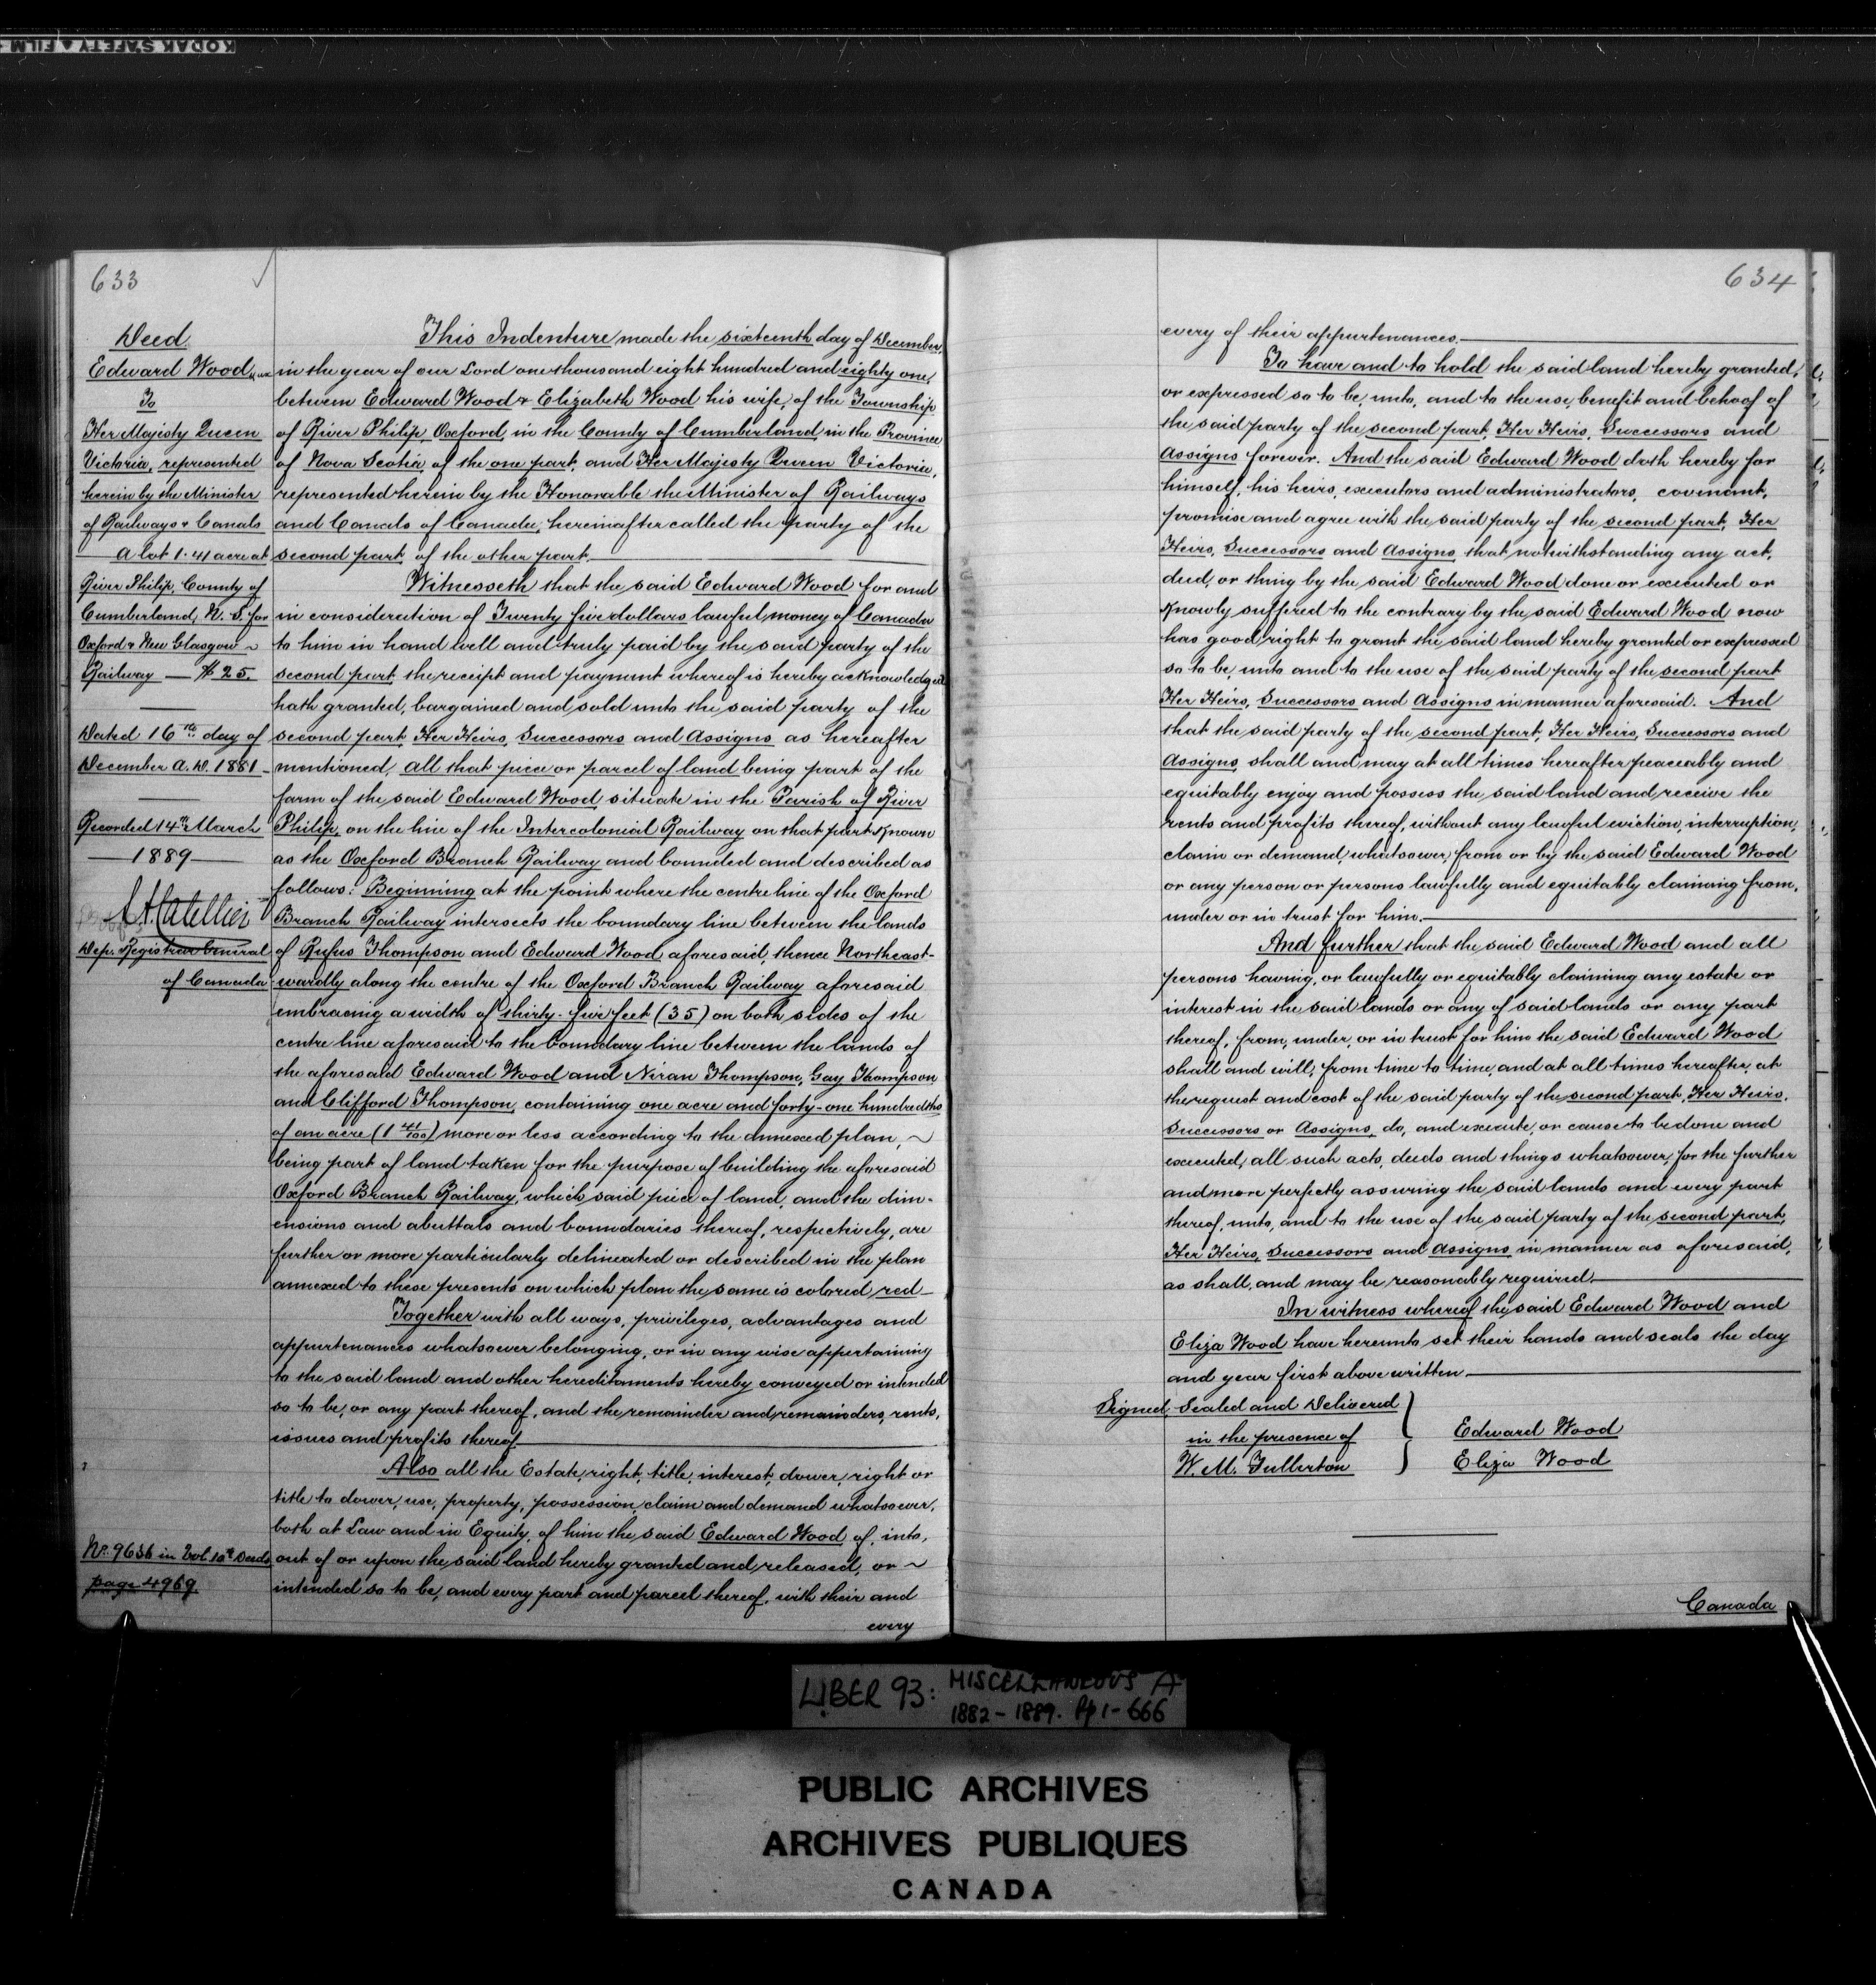 KODAK SAFETY FILM
633
Deed
Edward Wood & ux
To
Her Majesty Queen
Victoria, represented
herein by the Minister
of Railways & Canals
A lot 1.41 acre at
River Philip, County of
Cumberland, N. S. for
Oxford & New Glasgow ~
Railway — $25.
Dated 16th day of
December A.D. 1881
Recorded 14th March
1889
Dep. Registrar General
of Canada
No. 9636 in Vol 10th Deeds
page 4969
This Indenture made the sixteenth day of December,
in the year of our Lord one thousand eight hundred and eighty one,
between Edward Wood & Elizabeth Wood his wife, of the Township
of River Philip, Oxford, in the County of Cumberland in the Province
of Nova Scotia, of the one part, and Her Majesty Queen Victoria,
represented herein by the Honorable the Minister of Railways
and Canals of Canada, hereinafter called the party of the
second part, of the other part.
Witnesseth that the said Edward Wood for and
in consideration of Twenty five dollars lawful money of Canada
to him in hand well and truly paid by the said party of the
second part, the receipt and payment whereof is hereby acknowledged
hath granted, bargained and sold unto the said party of the
second part, Her Heirs, Successors and Assigns as hereafter
mentioned, all that piece or parcel of land being part of the
farm of the said Edward Wood situate in the Parish of River
Philip, on the line of the Intercolonial Railway on that part known
as the Oxford Branch Railway and bounded and described as
follows: Beginning at the point where the centre line of the Oxford
Branch Railway intersects the boundary line between the lands
of Rufus Thompson and Edward Wood aforesaid, thence Northeast-
wardly along the centre of the Oxford Branch Railway aforesaid
embracing a width of thirty-five feet (35) on both sides of the
centre line aforesaid to the boundary line between the lands of
the aforesaid Edward Wood and Niran Thompson, Gay Thompson
and Clifford Thompson, containing one acre and forty-one hundredths
of an acre (1 41/100) more or less according to the annexed plan, ~
being part of land taken for the purpose of building the aforesaid
Oxford Branch Railway, which said piece of land, and the dim-
ensions and abuttals and boundaries thereof, respectively, are
further or more particularly delineated or described in the plan
annexed to these presents on which plan the same is colored red
Together with all ways, privileges, advantages and
appurtenances whatsoever belonging, or in any wise appertaining
to the said land and other hereditaments hereby conveyed or intended
so to be, or any part thereof, and the remainder and remainders, rents,
issues and profits thereof
Also all the Estate, right, title, interest, dower, right or
title to dower, use, property, possession, claim and demand whatsoever,
both at Law and in Equity, of him the said Edward Wood of, into,
out of or upon the said land hereby granted and released, or ~
intended so to be, and every part and parcel thereof, with their and
every
634
every of their appurtenances.
To have and to hold the said land hereby granted,
or expressed so to be, unto, and to the use, benefit and behoof of
the said party of the second part, Her Heirs, Successors and
Assigns forever. And the said Edward Wood doth hereby for
himself, his heirs, executors and administrators, covenant,
promise and agree with the said party of the second part, Her
Heirs, Successors and Assigns, that notwithstanding any act,
deed, or thing by the said Edward Wood done or executed or
Knowly suffered to the contrary by the said Edward Wood now
has good right to grant the said land hereby granted or expressed
so to be, unto and to the use of the said party of the second part
Her Heirs, Successors and Assigns in manner aforesaid. And
that the said party of the second part, Her Heirs, Successors and
Assigns, shall and may at all times hereafter peaceably and
equitably enjoy and possess the said land and receive the
rents and profits thereof, without any lawful eviction, interruption,
claim or demand, whatsoever, from or by the said Edward Wood
or any person or persons lawfully and equitably claiming from,
under or in trust for him.
And further that the said Edward Wood and all
persons having, or lawfully or equitably claiming any estate or
interest in the said lands or any of said lands or any part
thereof, from, under, or in trust for him the said Edward Wood
shall and will, from time to time, and at all times hereafter, at
the request and cost of the said party of the second part, Her Heirs,
Successors or Assigns, do, and execute, or cause to be done and
executed, all such acts, deeds and things whatsoever, for the further
and more perfectly assuring the said lands and every part
thereof, unto, and to the use of the said party of the second part,
Her Heirs, Successors and Assigns, in manner as aforesaid,
as shall, and may be reasonably required.
In witness whereof the said Edward Wood and
Eliza Wood have hereunto set their hands and seals the day
and year first above written.
Signed, Sealed and Delivered
in the presence of
W. M. Fullerton
Edward Wood
Eliza Wood
Canada
LIBER 93: MISCELLANEOUS A
1882-1889. Pp 1-666
PUBLIC ARCHIVES
ARCHIVES PUBLIQUES
CANADA